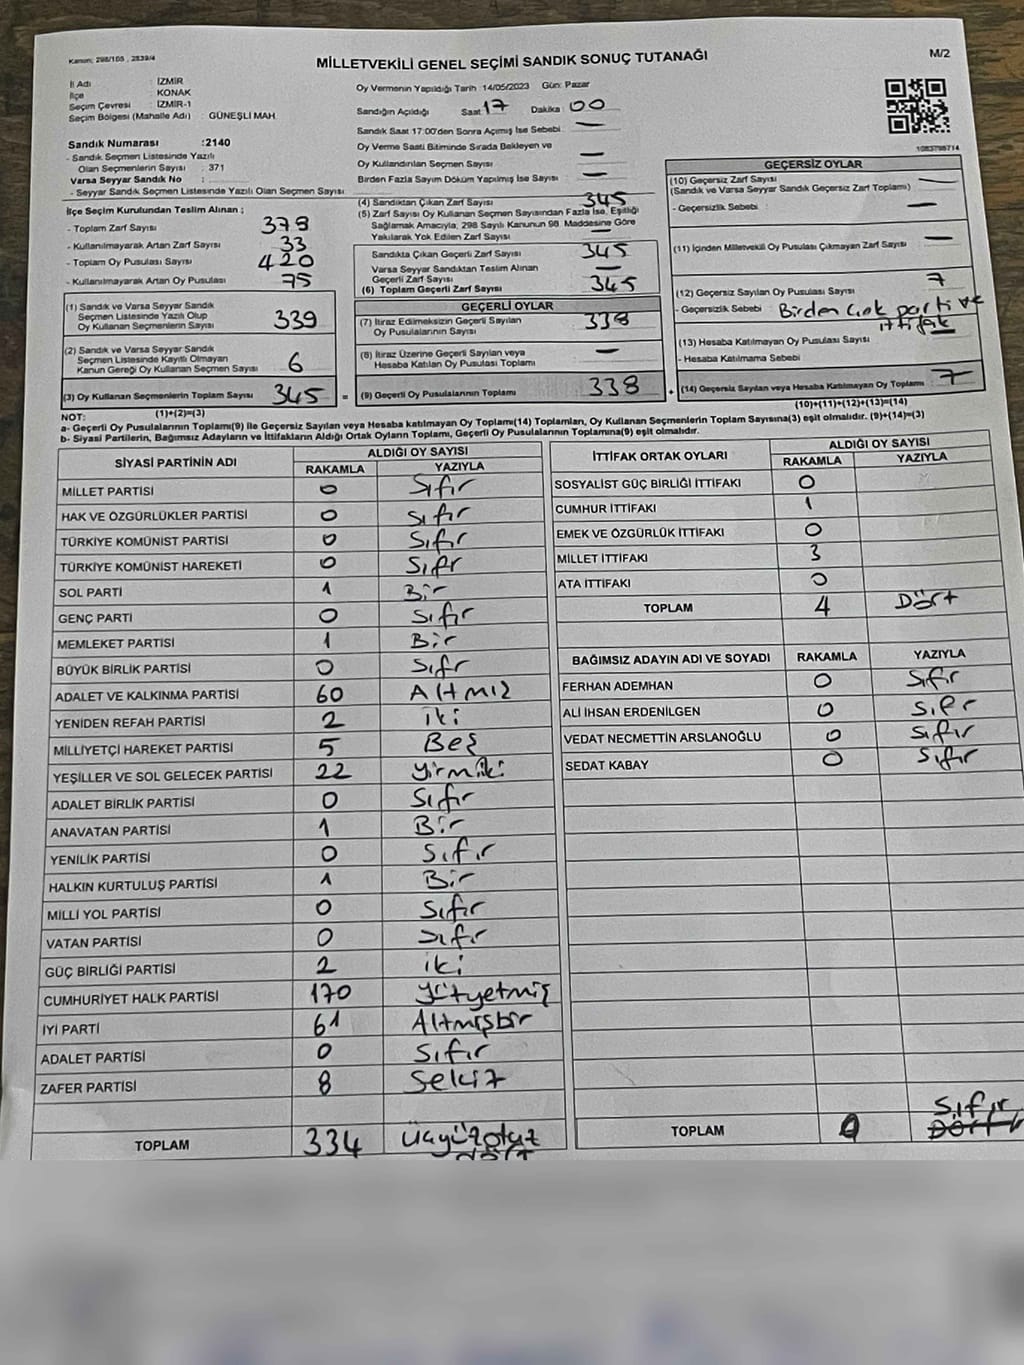 Kanun; 298/105 , 2839/4
MİLLETVEKİLİ GENEL SEÇİMİ SANDIK SONUÇ TUTANAĞI
M/2
İl Adı : İZMİR
İlçe : KONAK
Seçim Çevresi : İZMİR-1
Seçim Bölgesi (Mahalle Adı) : GÜNEŞLİ MAH.
Sandık Numarası :2140
- Sandık Seçmen Listesinde Yazılı
Olan Seçmenlerin Sayısı : 371
Varsa Seyyar Sandık No :
- Seyyar Sandık Seçmen Listesinde Yazılı Olan Seçmen Sayısı
Oy Vermenin Yapıldığı Tarih :14/05/2023 Gün: Pazar
Sandığın Açıldığı Saat 17 Dakika : 00
Sandık Saat 17:00'den Sonra Açımış İse Sebebi : —
Oy Verme Saati Bitiminde Sırada Bekleyen ve
Oy Kullandırılan Seçmen Sayısı : —
Birden Fazla Sayım Döküm Yapılmış İse Sayısı : —
1083798714
İlçe Seçim Kurulundan Teslim Alınan ;
- Toplam Zarf Sayısı 378
- Kullanılmayarak Artan Zarf Sayısı 33
- Toplam Oy Pusulası Sayısı 420
- Kullanılmayarak Artan Oy Pusulası 75
(1) Sandık ve Varsa Seyyar Sandık
Seçmen Listesinde Yazılı Olup
Oy Kullanan Seçmenlerin Sayısı 339
(2) Sandık ve Varsa Seyyar Sandık
Seçmen Listesinde Kayıtlı Olmayan
Kanun Gereği Oy Kullanan Seçmen Sayısı 6
(3) Oy Kullanan Seçmenlerin Toplam Sayısı 345 =
(1)+(2)=(3)
(4) Sandıktan Çıkan Zarf Sayısı 345
(5) Zarf Sayısı Oy Kullanan Seçmen Sayısından Fazla İse, Eşitliği
Sağlamak Amacıyla; 298 Sayılı Kanunun 98. Maddesine Göre
Yakılarak Yok Edilen Zarf Sayısı —
Sandıkta Çıkan Geçerli Zarf Sayısı 345
Varsa Seyyar Sandıktan Teslim Alınan
Geçerli Zarf Sayısı —
(6) Toplam Geçerli Zarf Sayısı 345
GEÇERLİ OYLAR
(7) İtiraz Edilmeksizin Geçerli Sayılan
Oy Pusulalarının Sayısı 338
(8) İtiraz Üzerine Geçerli Sayılan veya
Hesaba Katılan Oy Pusulası Toplamı —
(9) Geçerli Oy Pusulalarının Toplamı 338 +
GEÇERSİZ OYLAR
(10) Geçersiz Zarf Sayısı —
(Sandık ve Varsa Seyyar Sandık Geçersiz Zarf Toplamı)
- Geçersizlik Sebebi : —
(11) İçinden Milletvekili Oy Pusulası Çıkmayan Zarf Sayısı —
(12) Geçersiz Sayılan Oy Pusulası Sayısı 7
- Geçersizlik Sebebi : Birden çok parti ve
ittifak
(13) Hesaba Katılmayan Oy Pusulası Sayısı —
- Hesaba Katılmama Sebebi
(14) Geçersiz Sayılan veya Hesaba Katılmayan Oy Toplamı 7
(10)+(11)+(12)+(13)=(14)
NOT:
a- Geçerli Oy Pusulalarının Toplamı(9) ile Geçersiz Sayılan veya Hesaba katılmayan Oy Toplamı(14) Toplamları, Oy Kullanan Seçmenlerin Toplam Sayısına(3) eşit olmalıdır. (9)+(14)=(3)
b- Siyasi Partilerin, Bağımsız Adayların ve İttifakların Aldığı Ortak Oyların Toplamı, Geçerli Oy Pusulalarının Toplamına(9) eşit olmalıdır.
SİYASİ PARTİNİN ADI ALDIĞI OY SAYISI
RAKAMLA YAZIYLA
MİLLET PARTİSİ 0 Sıfır
HAK VE ÖZGÜRLÜKLER PARTİSİ 0 Sıfır
TÜRKİYE KOMÜNİST PARTİSİ 0 Sıfır
TÜRKİYE KOMÜNİST HAREKETİ 0 Sıfr
SOL PARTİ 1 Bir
GENÇ PARTİ 0 Sıfır
MEMLEKET PARTİSİ 1 Bir
BÜYÜK BİRLİK PARTİSİ 0 Sıfr
ADALET VE KALKINMA PARTİSİ 60 Altmız
YENİDEN REFAH PARTİSİ 2 iki
MİLLİYETÇİ HAREKET PARTİSİ 5 Beş
YEŞİLLER VE SOL GELECEK PARTİSİ 22 Yirmiki
ADALET BİRLİK PARTİSİ 0 Sıfır
ANAVATAN PARTİSİ 1 Bir
YENİLİK PARTİSİ 0 Sıfır
HALKIN KURTULUŞ PARTİSİ 1 Bir
MİLLİ YOL PARTİSİ 0 Sıfır
VATAN PARTİSİ 0 Sıfır
GÜÇ BİRLİĞİ PARTİSİ 2 iki
CUMHURİYET HALK PARTİSİ 170 Yüzyetmiş
İYİ PARTİ 61 Altmışbir
ADALET PARTİSİ 0 Sıfır
ZAFER PARTİSİ 8 Sekiz
TOPLAM 334 Üçyüzotuz
dört
İTTİFAK ORTAK OYLARI ALDIĞI OY SAYISI
RAKAMLA YAZIYLA
SOSYALİST GÜÇ BİRLİĞİ İTTİFAKI 0
CUMHUR İTTİFAKI 1
EMEK VE ÖZGÜRLÜK İTTİFAKI 0
MİLLET İTTİFAKI 3
ATA İTTİFAKI 0
TOPLAM 4 Dört
BAĞIMSIZ ADAYIN ADI VE SOYADI RAKAMLA YAZIYLA
FERHAN ADEMHAN 0 Sıfır
ALİ İHSAN ERDENİLGEN 0 Sıfr
VEDAT NECMETTİN ARSLANOĞLU 0 Sıfır
SEDAT KABAY 0 Sıfır
Sıfır
TOPLAM 0 Dört